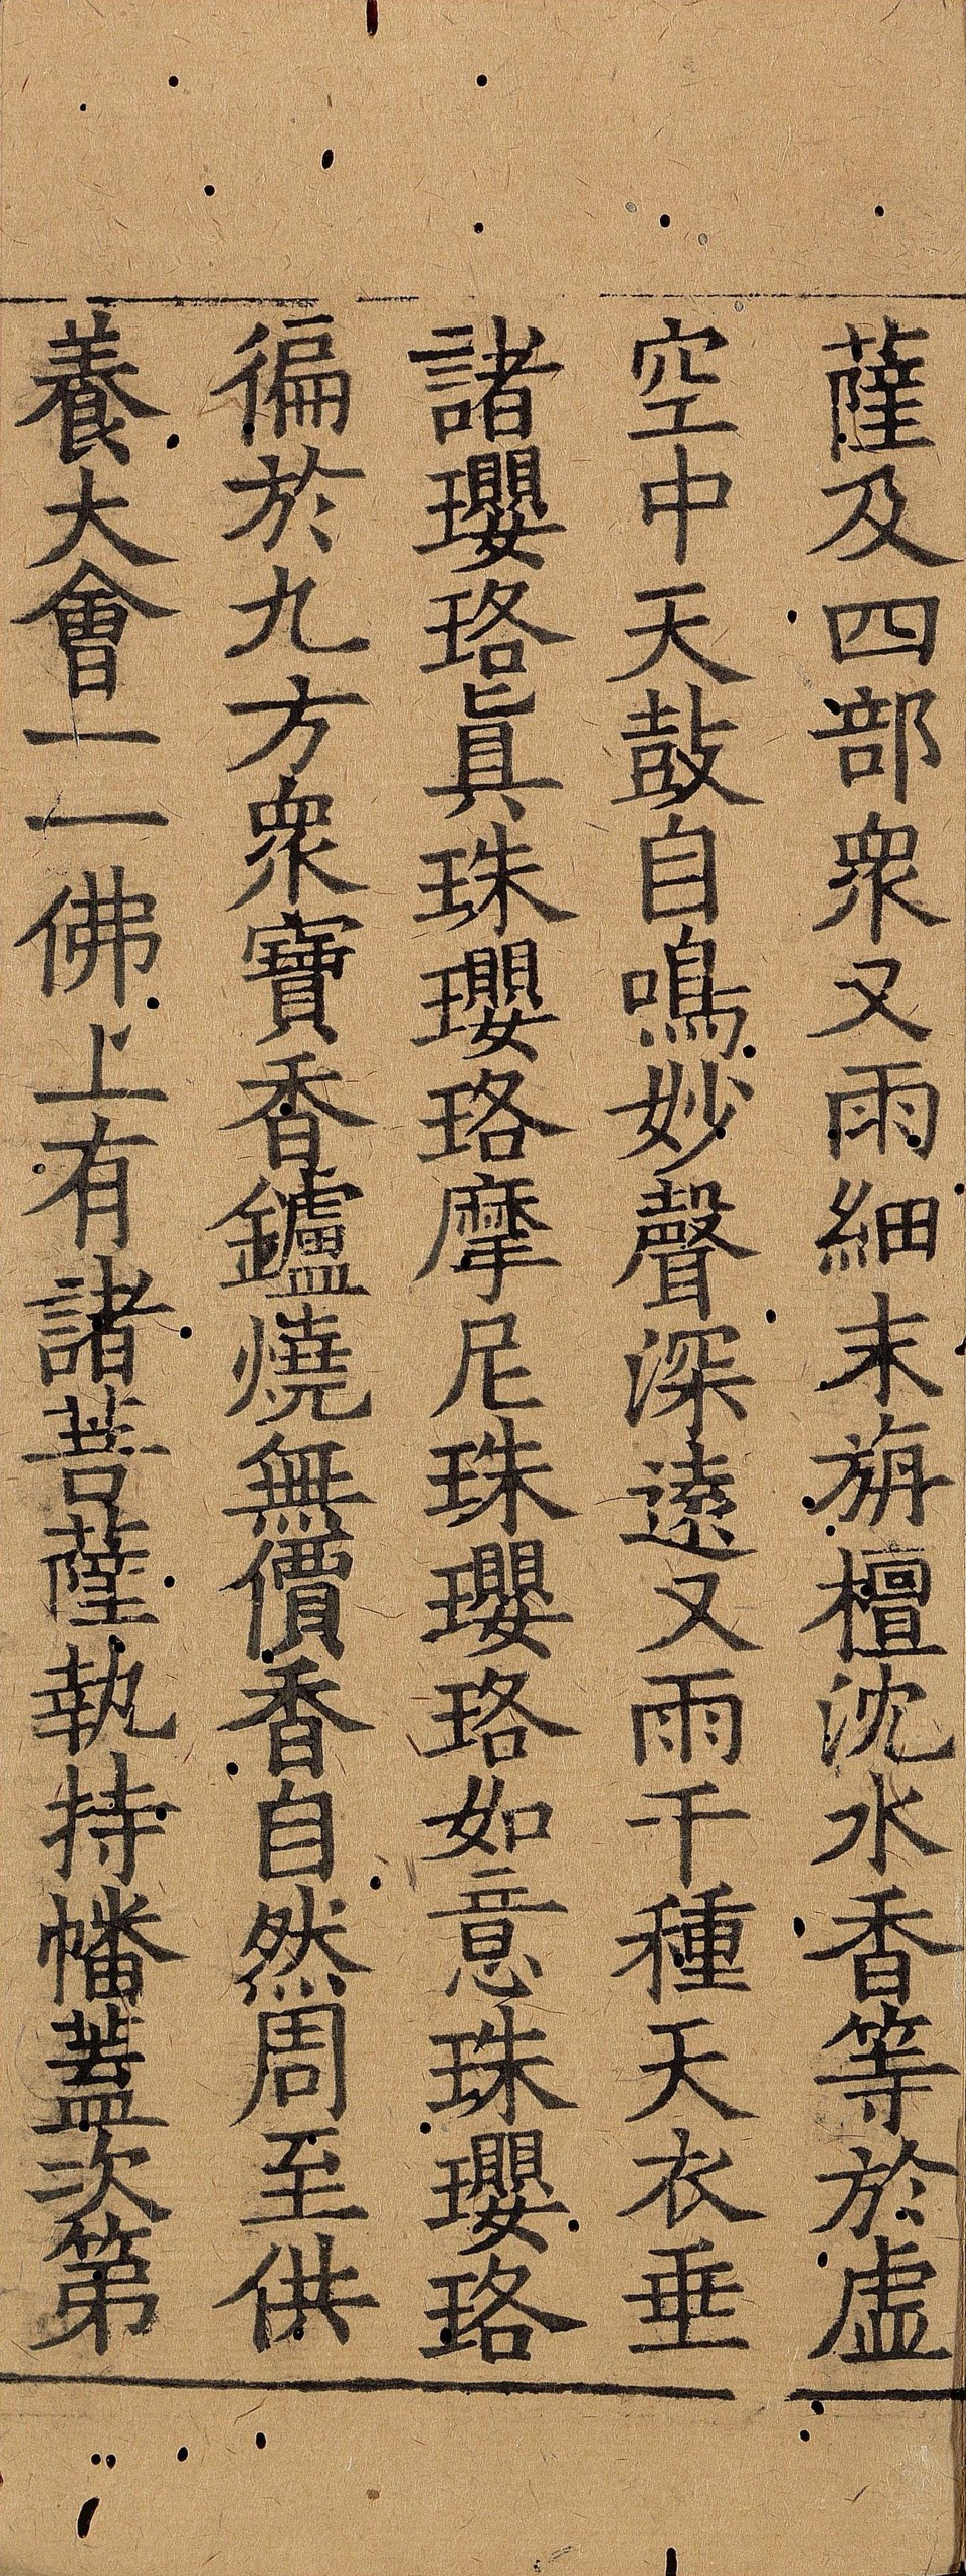 薩及四部衆又雨細末旃檀沈水香等於虛
空中天鼓自鳴妙聲深遠又雨千種天衣垂
諸瓔珞眞珠瓔珞摩尼珠瓔珞如意珠瓔珞
徧於九方衆寶香鑪燒無價香自然周至供
養大會一一佛上有諸菩薩執持幡蓋次第